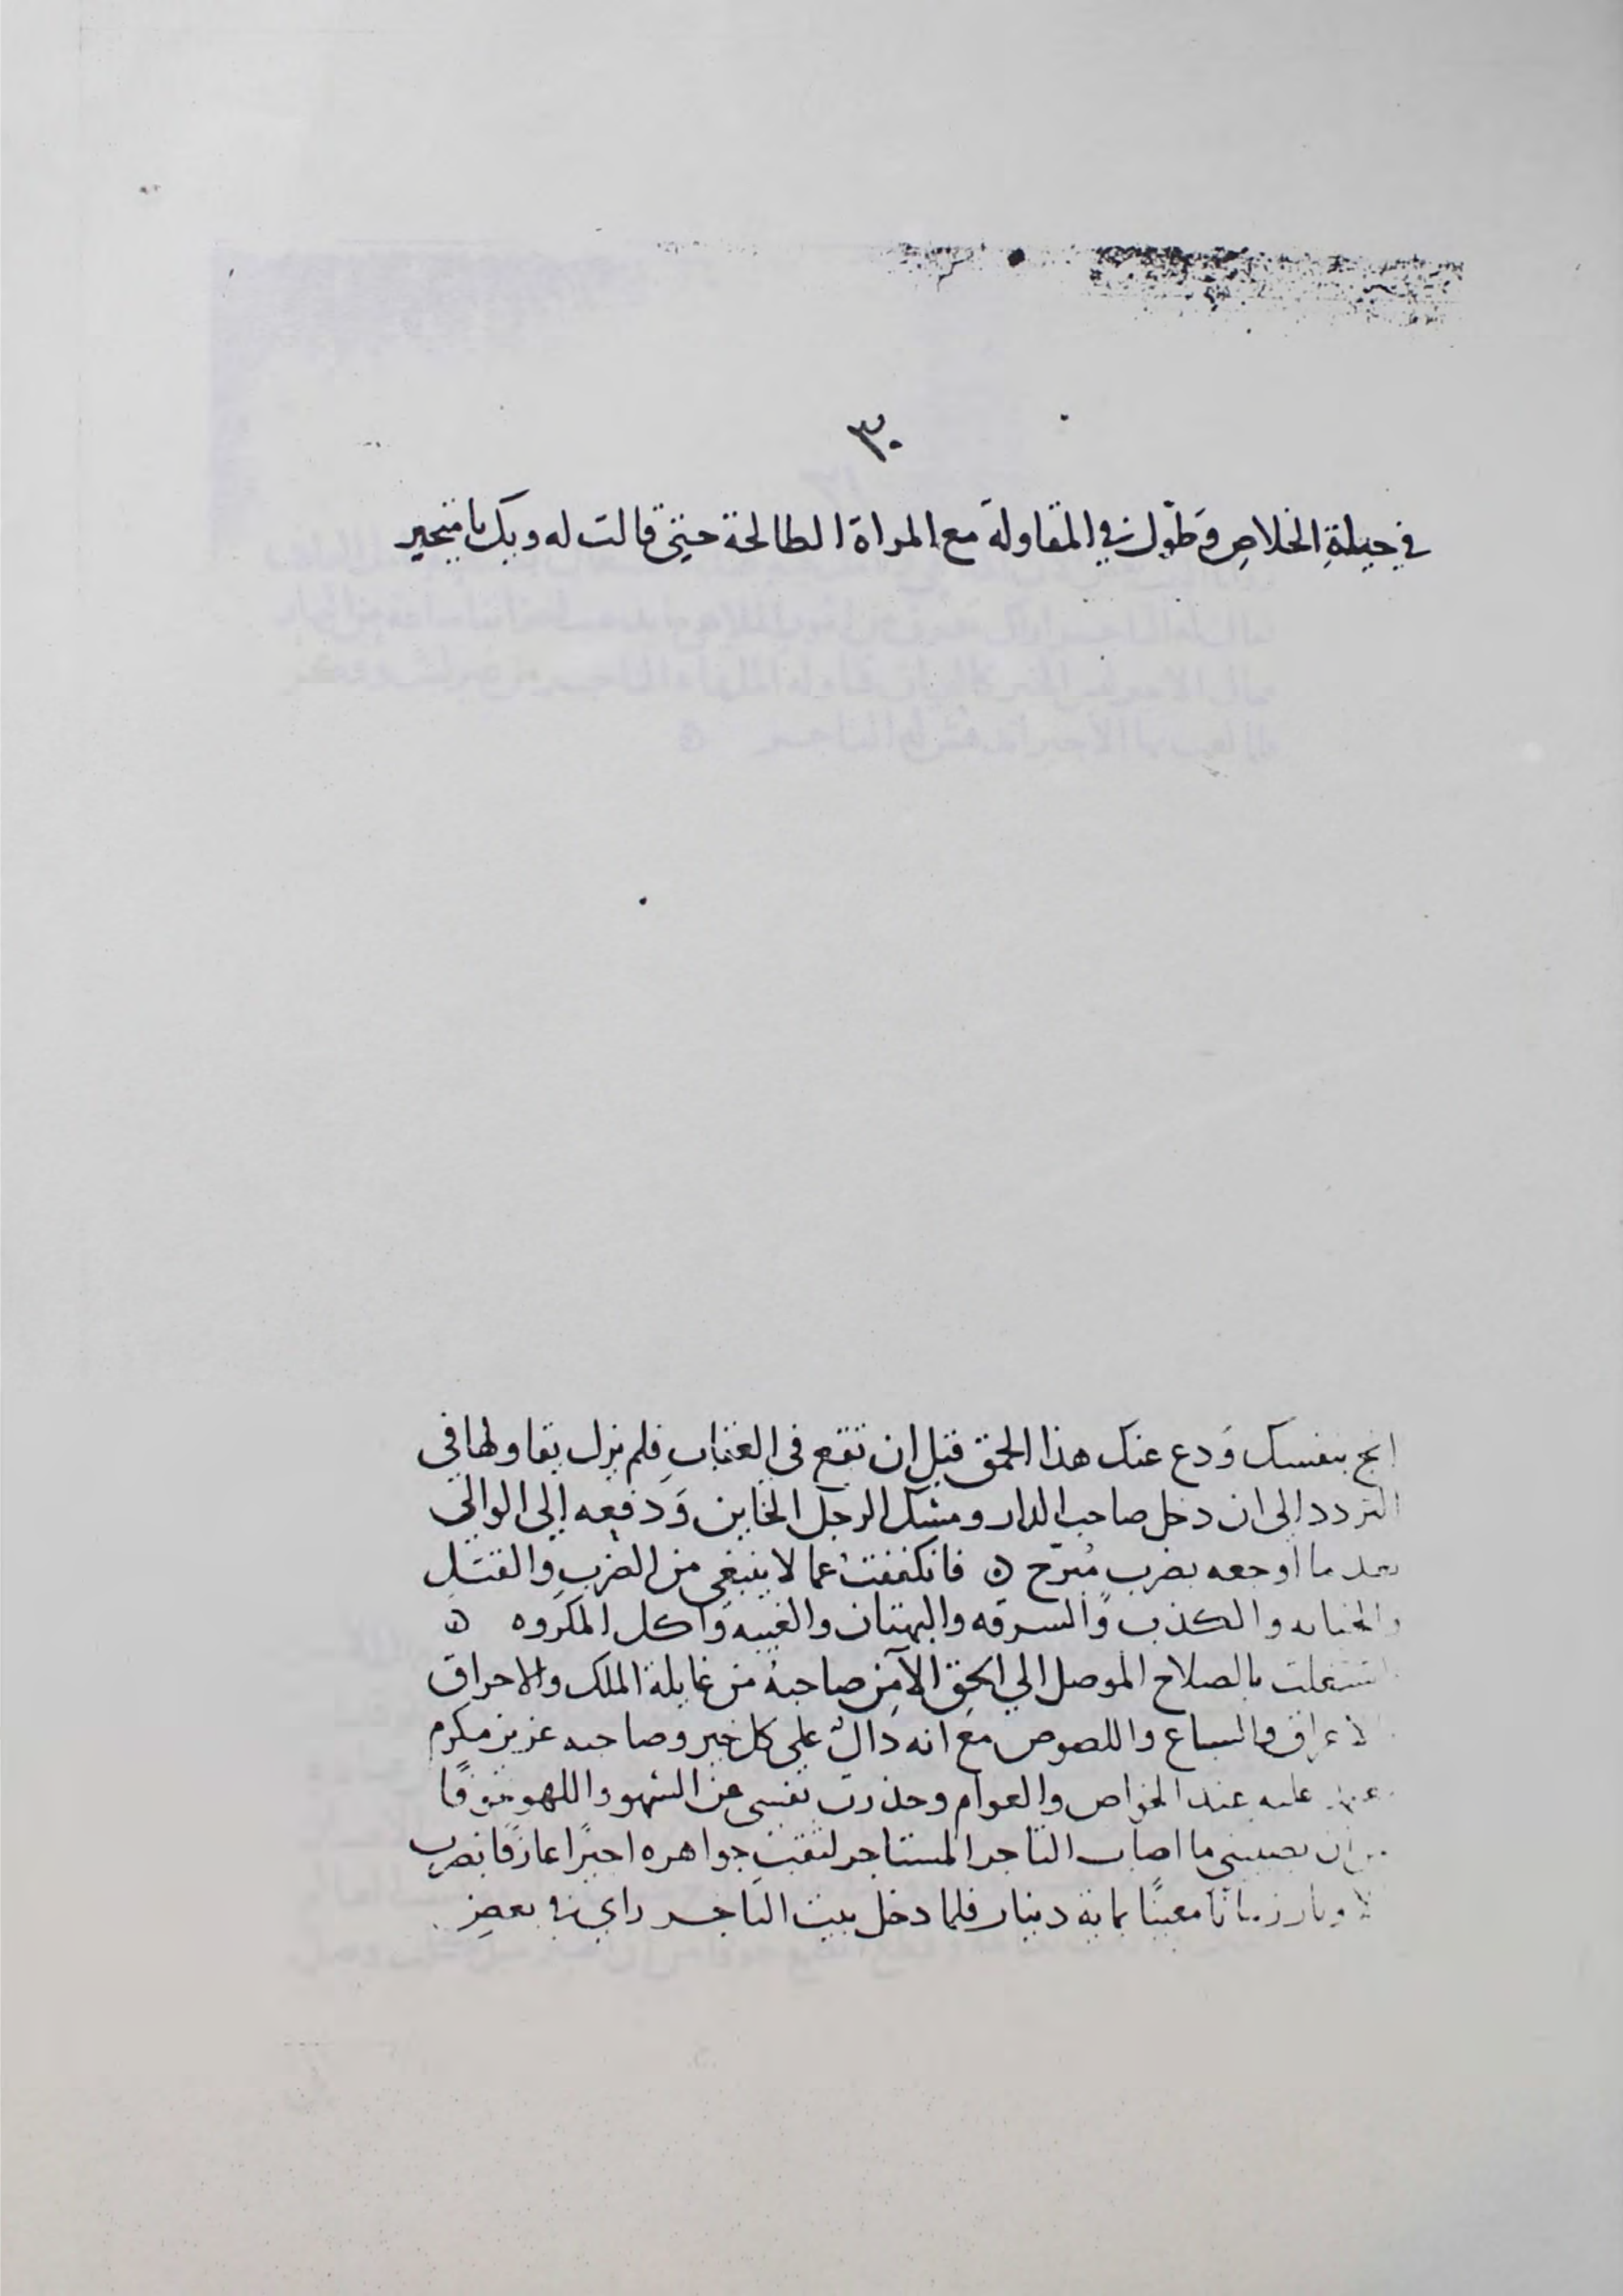 ٣٠
في حيلةِ الخلاصِ وَطوّل في المقاولة مع المراة الطالحة حتى قالت له ويك يا متحير
انج بنفسك وَدع عنك هذا الحمق قبل ان تقع في العقاب فلم يزل يقاولها في
التردد الى ان دخل صاحب الدار ومسك الرجل الخاين وَدفعه إلى الوالي
بعد ما اوجعه بضرب مُبَرّح ه فانكففت عما لا ينبغي من الضرب والقتل
والخيانه والكذب والسرقه والبهتان والغيبه وَاكل المكروه ه
اشتغلت بالصلاح الموصل الي الحق الآمن صاحبهُ من غايلة الملك والاحراق
والسباع واللصوص مع انه دَالٌ علي كل خير وصاحبه عزيز مكرم
عليه عند الخواص والعوام وحذرت نفسي عن الشهو واللهو خوفًا
من ان يصيبني ما اصاب التاجر المستاجر لثقب جواهره اجيرًا عازفًا بضرب
الاوتار زمانًا معينًا بماية دينار فلما دخل بيت التاجر راي في بعض